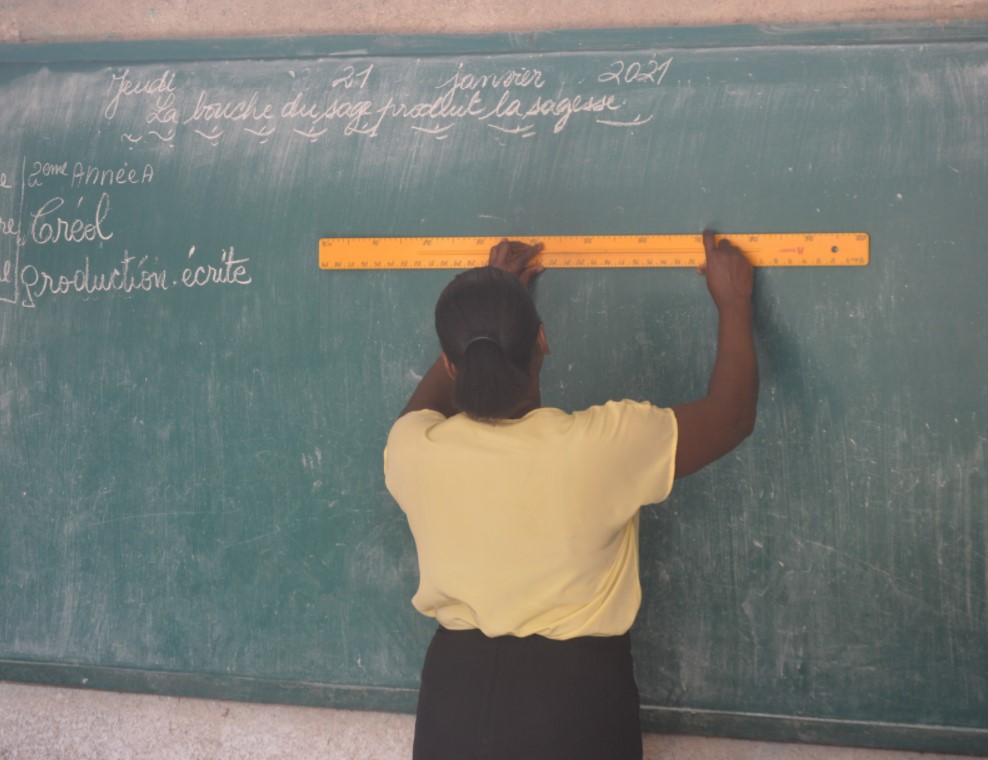 Jeudi à 21 janvier 2021
La bouche du sage produit la sagesse.
e 2eme Année A
re Créol
el production écrite